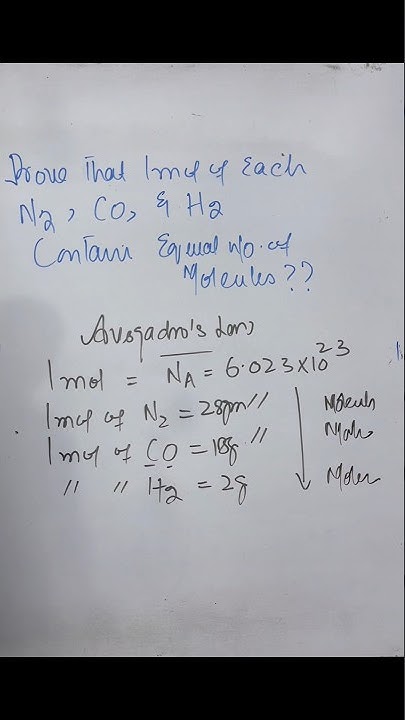 Prove That 1mol of Each
N2, CO, & H2
Contain Equal No. of
Molecules??
Avogadro's Law
1 mol = NA = 6.023×10^23
1mol of N2 = 28gm // Molecule
1mol of CO = 18g // Mole
// // H2 = 2g Molec